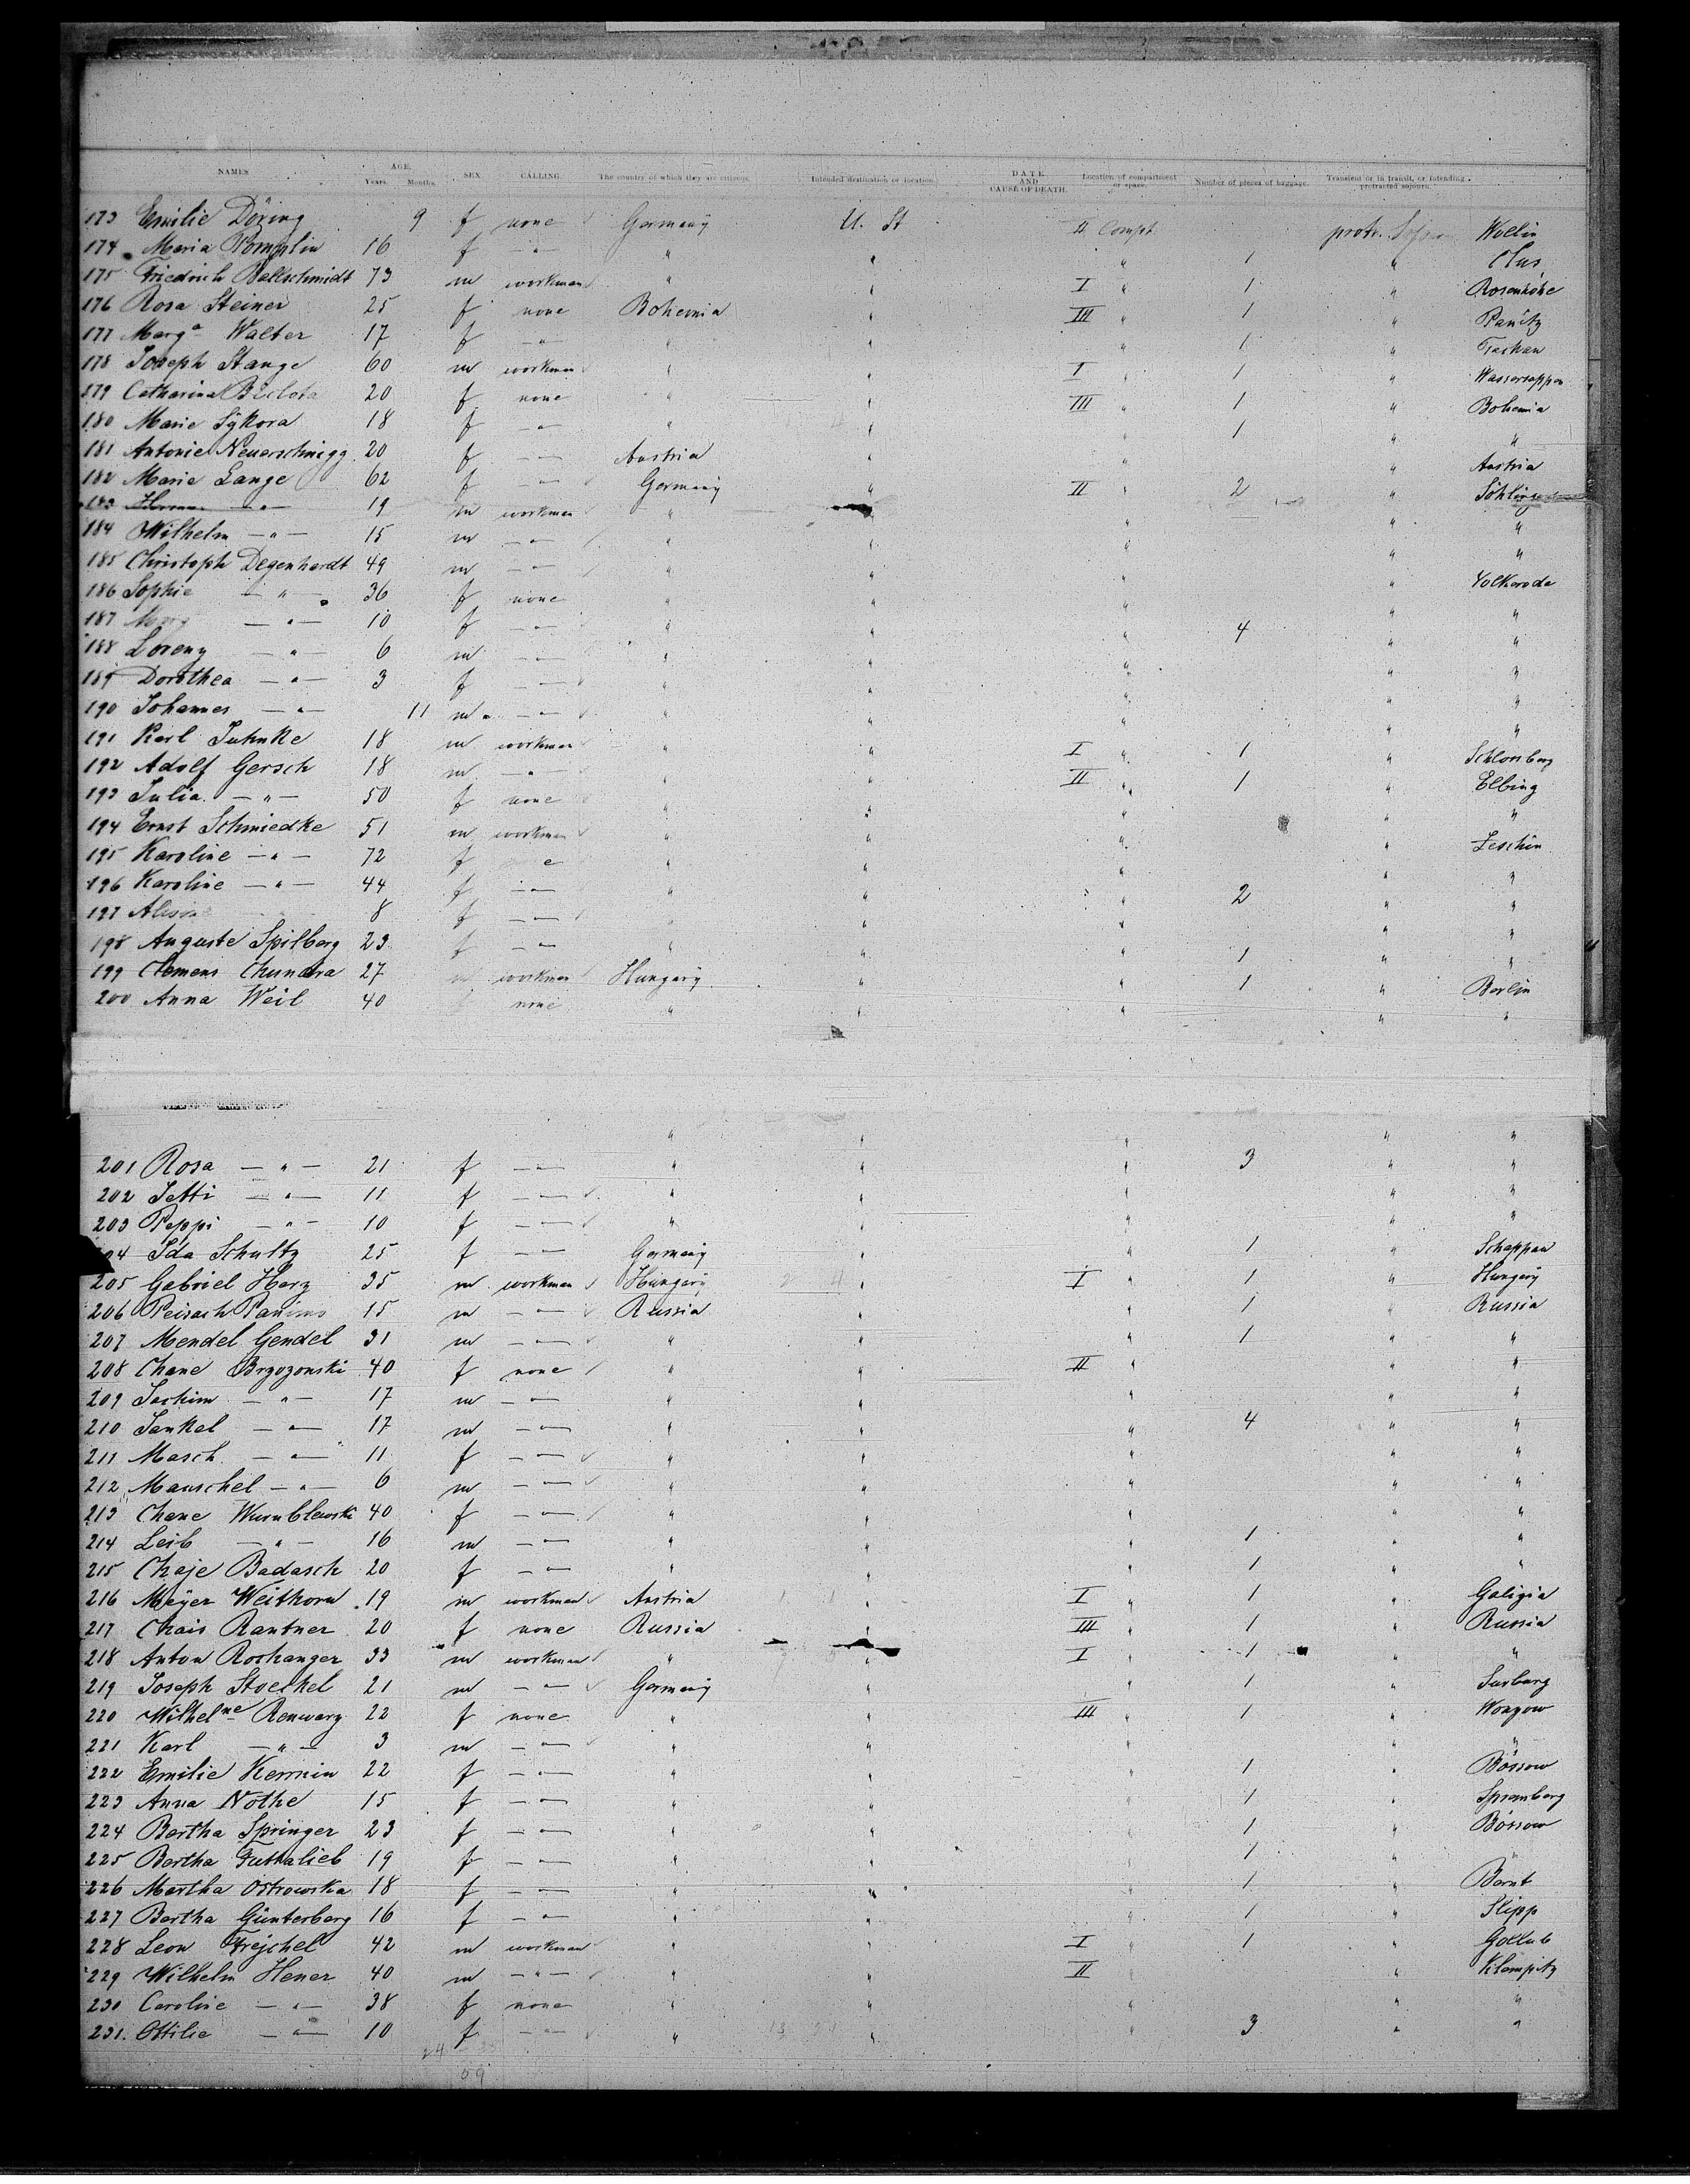 NAMES AGE. Years. Months. SEX CALLING. The country of which they are citizens. Intended destination or location. DATE AND CAUSE OF DEATH. Location of compartment or space. Number of pieces of baggage. Transient or in transit, or intending protracted sojourn.
173 Emilie Döring 9 f none Germany U. St II Compt protr. Wollin
174 Maria Pomplin 16 f " " " " 1 "
175 Friedrich Ballschmidt 73 m workman " " I " 1 " Rosenhöhe
176 Rosa Steiner 25 f none Bohemia " III " 1 "
177 Marga Walter 17 f " " " " 1 "
178 Joseph Stange 60 m workman " " I " 1 "
179 Catharina 20 f none " " III " 1 " Bohemia
180 Marie Sÿkora 18 f " " " " 1 " "
181 Antonie Neuerschnigg 20 f " Austria " " " Austria
182 Marie Lange 62 f " Germany " II " 2 "
183 Herman " 19 m workman " " " " "
184 Wilhelm " 15 m " " " " " "
185 Christoph Degenhardt 49 m " " " " " Volkerode
186 Sophie " 36 f none " " " " "
187 " 10 f " " " " 4 " "
188 Lorenz " 6 m " " " " " "
189 Dorothea " 3 f " " " " " "
190 Johannes " 11 m " " " " " "
191 Karl Juhnke 18 m workman " " I " 1 "
192 Adolf Gersch 18 m " " " II " 1 " Elbing
193 Julia " 50 f none " " " " "
194 Ernst Schmiedke 51 m workman " " " " Zeschin
195 Karoline " 72 f " " " " "
196 Karoline " 44 f " " " " 2 " "
197 8 f " " " " " "
198 Auguste Spilberg 23 f " " " " 1 " "
199 Clemens Chundra 27 workman Hungary " " 1 " Berlin
200 Anna Weil 40 none " " " " "
201 Rosa " 21 f " " " " 3 " "
202 Jetti " 11 f " " " " " "
203 Peppi " 10 f " " " " " "
204 Ida Schultz 25 f " Germany " " 1 " Schappan
205 Gabriel Herz 35 m workman Hungary " I " 1 " Hungary
206 Peisach 15 m " Russia " " 1 " Russia
207 Mendel Gendel 31 m " " " " 1 " "
208 Chane Brzozonski 40 f none " " II " " "
209 Jochim " 17 m " " " " " "
210 Jankel " 17 m " " " " 4 " "
211 Masch " 11 f " " " " " "
212 Mauschel " 6 m " " " " " "
213 Chane Wurublewski 40 f " " " " " "
214 Leib " 16 m " " " " 1 " "
215 Chaje Badasch 20 f " " " " 1 " "
216 Meÿer Weithorn 19 m workman Austria " I " 1 " Galizia
217 Chais Rantner 20 f none Russia " III " 1 " Russia
218 Anton Roshanger 33 m workman " " I " 1 " "
219 Joseph Stoeckel 21 m " Germany " " 1 " Surburg
220 Wilhelne Renwarz 22 f none " " III " 1 " Wongow
221 Karl " 3 m " " " " " "
222 Emilie Kermin 22 f " " " " 1 " Bössow
223 Anna Nothe 15 f " " " " 1 " Spremberg
224 Bertha Springer 23 f " " " " 1 " Bössow
225 Bertha Futhalieb 19 f " " " " 1 " "
226 Martha Ostrowska 18 f " " " " 1 " Bernt
227 Bertha Günterberg 16 f " " " " 1 " Slipp
228 Leon Frejchel 42 m workman " " I " 1 " Gollub
229 Wilhelm Hener 40 m " " " II " " Klempitz
230 Caroline " 38 f none " " " " "
231. Ottilie " 10 f " " " " 3 " "
24
09